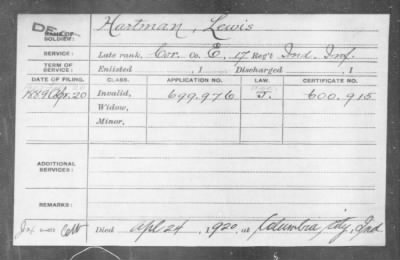 DE
NAME OF SOLDIER: Hartman, Lewis
SERVICE: Late rank, Cor. Co. E, 17 Reg't Ind. Inf.
TERM OF SERVICE: Enlisted , 1 Discharged , 1
DATE OF FILING. CLASS. APPLICATION NO. LAW. CERTIFICATE NO.
1889 Apr. 20 Invalid, 699.976 J. 600.915
Widow,
Minor,
ADDITIONAL SERVICES:
REMARKS:
Died Apl 24, 1920, at Columbia City, Ind